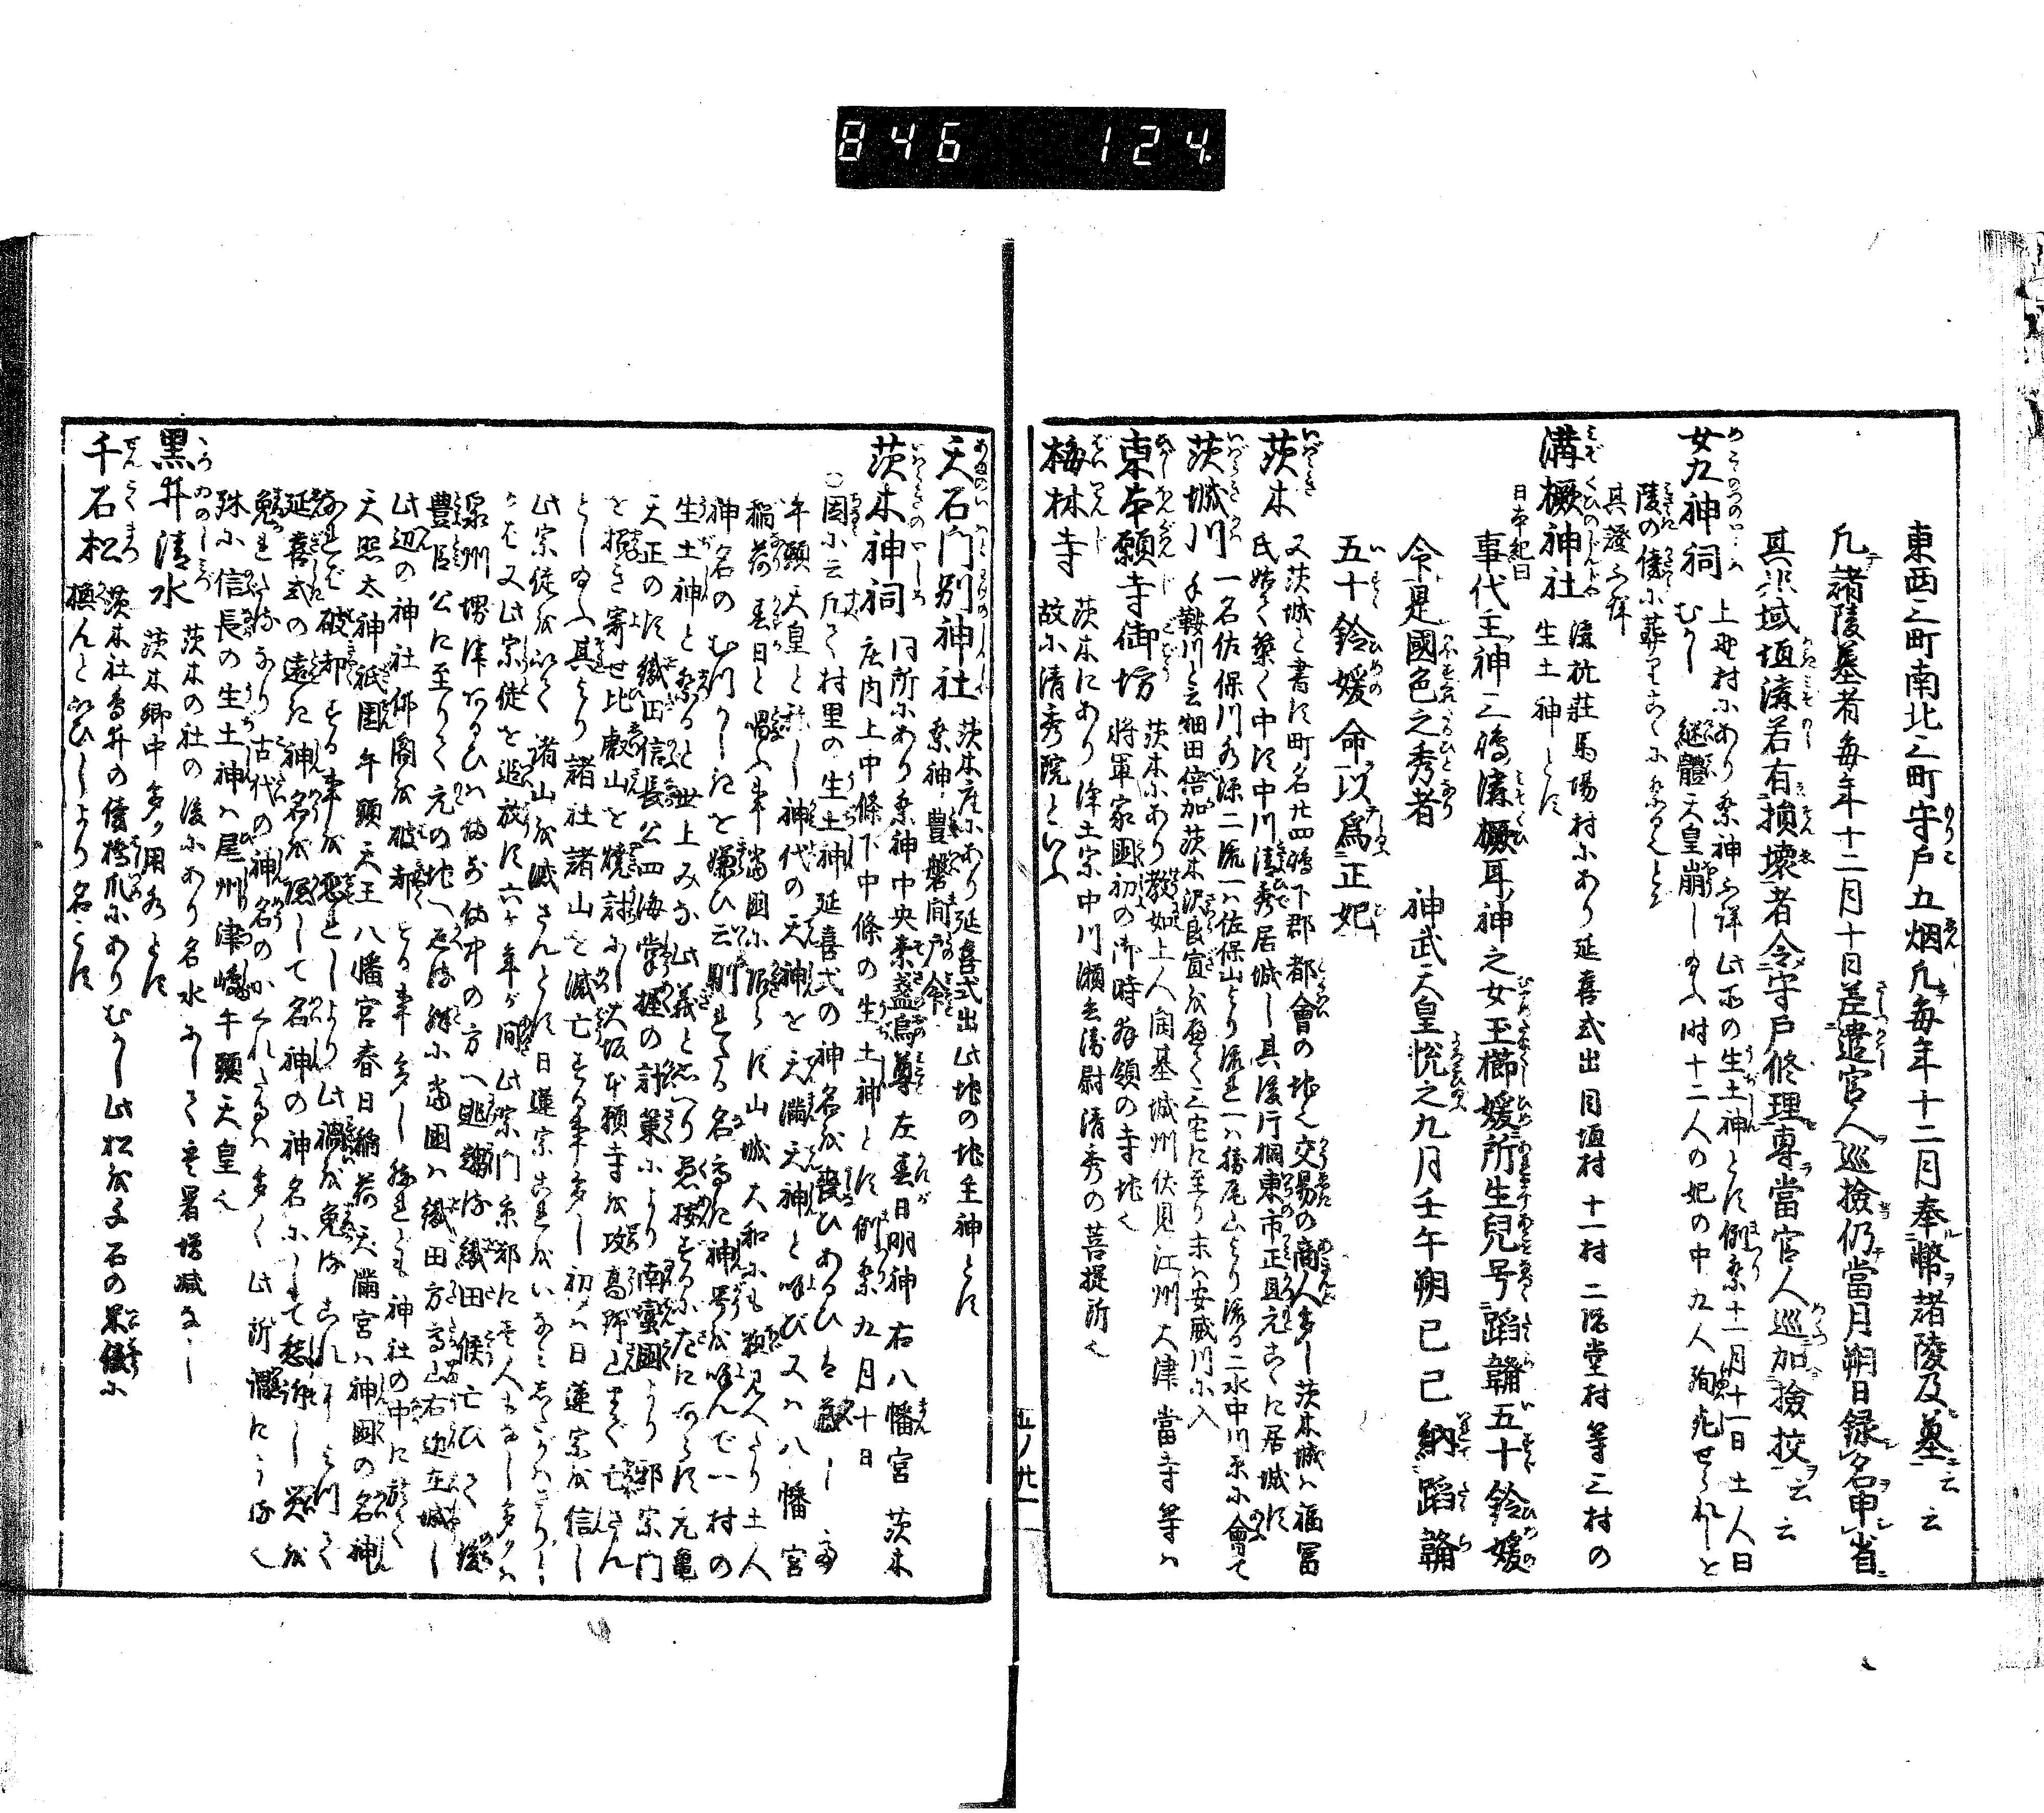 846 124.
東西之町南北之町守戸五烟凡毎年十二月奉幣諸陵及墓云云
凡諸陵墓者毎年十二月十日差遣官人巡撿仍當月朔日録名申省
其兆域垣溝若有損壊者令守戸修理専當官人巡加撿挍云云
女九神祠 上野村にあり祭神不詳此所の生土神とす例祭十一月十一日土人曰
むかし継體天皇崩し給ふ時十二人の妃の中九人殉死せられしと
陵の傍に葬りこゝに祭るとぞ
其證不詳
溝樴神社 溝杭荘馬場村にあり延喜式出目垣村十一村二階堂村等三村の
生土神とす
日本紀曰
事代主神之孺溝樴耳神之女玉櫛媛所生兒号蹈鞴五十鈴媛
令是國色之秀者 神武天皇悦之九月壬午朔己巳納蹈鞴
五十鈴媛命以爲正妃
茨木 又茨城と書す町名廿四嶋下郡都會の地也交易の商人多し茨木城は福冨
氏始て築く中頃中川清秀居城し其後片桐東市正且元こゝに居城す
茨城川 一名佐保川水源二流一は佐保山より流れ一は勝尾山より流る二水中川原に會て
手鞍川と云細田倍加茨木沢良宜を歴て三宅に至り末は安威川に入
東本願寺御坊 茨木にあり教如上人開基城州伏見江州大津當寺等は
将軍家國初の御時拝領の寺地也
梅林寺 茨木にあり浄土宗中川瀬兵衛尉清秀の菩提所也
故に清秀院といふ
五ノ廿一
天石門別神社 茨木庄にあり延喜式出此地の地主神とす
祭神豊磐間戸命
茨木神祠 同所にあり祭神中央素盞烏尊左春日明神右八幡宮茨木
庄内上中條下中條の生土神とす例祭九月十日
○図に云凡て村里の生土神延喜式の神名を
牛頭天皇と称し神代の天神を天満天神と呼び又は八幡宮
稲荷春日と唱ふ事當国に限らず山城大和にも類見へたり土人
神名のむつかしきを嫌ひ云馴れたる名高き神号を呼んで一村の
生土神と祭ると世上みな此義と思へり愚按ずるに左にあらず元亀
天正の頃織田信長公四海掌握の計策により南蛮國より邪宗門
を招き寄せ比叡山を焼討にし大坂本願寺を攻高野山まで亡さん
とし給ふ其より諸社諸山を滅亡する事多し初めは日蓮宗を信し
此宗徒を以て諸山を滅さんとす日蓮宗これをいなみしたがはざりし
かば又此宗徒を追放す六ケ年が間此宗門京都に壱人もなし多くは
泉州堺津あるひは備前備中の方へ逃趨る織田候亡ひて後
豊臣公に至りて元の地へ還る殊に當國は織田方高山右近在城し
此辺の神社仏閣を破却する事多し然れとも神社の中に於て
天照太神祇園牛頭天王八幡宮春日稲荷天満宮は神國の名神
なれば破却する事を恐れしより此禍を免るこれによつて
延喜式の遠き神名を隠して名神の神名にしもて愁訴し災を
免れたるなり古代の神名のかくれたるは多く此所謂による也
殊に信長の生土神は尾州津嶋牛頭天皇也
黒井清水 茨木の社の後にあり名水にして寒暑増減なし
茨木郷中多く用水とす
千石松 茨木社鳥井の傍橋爪にありむかし此松を千石の米俵に
換んといひしより名とす